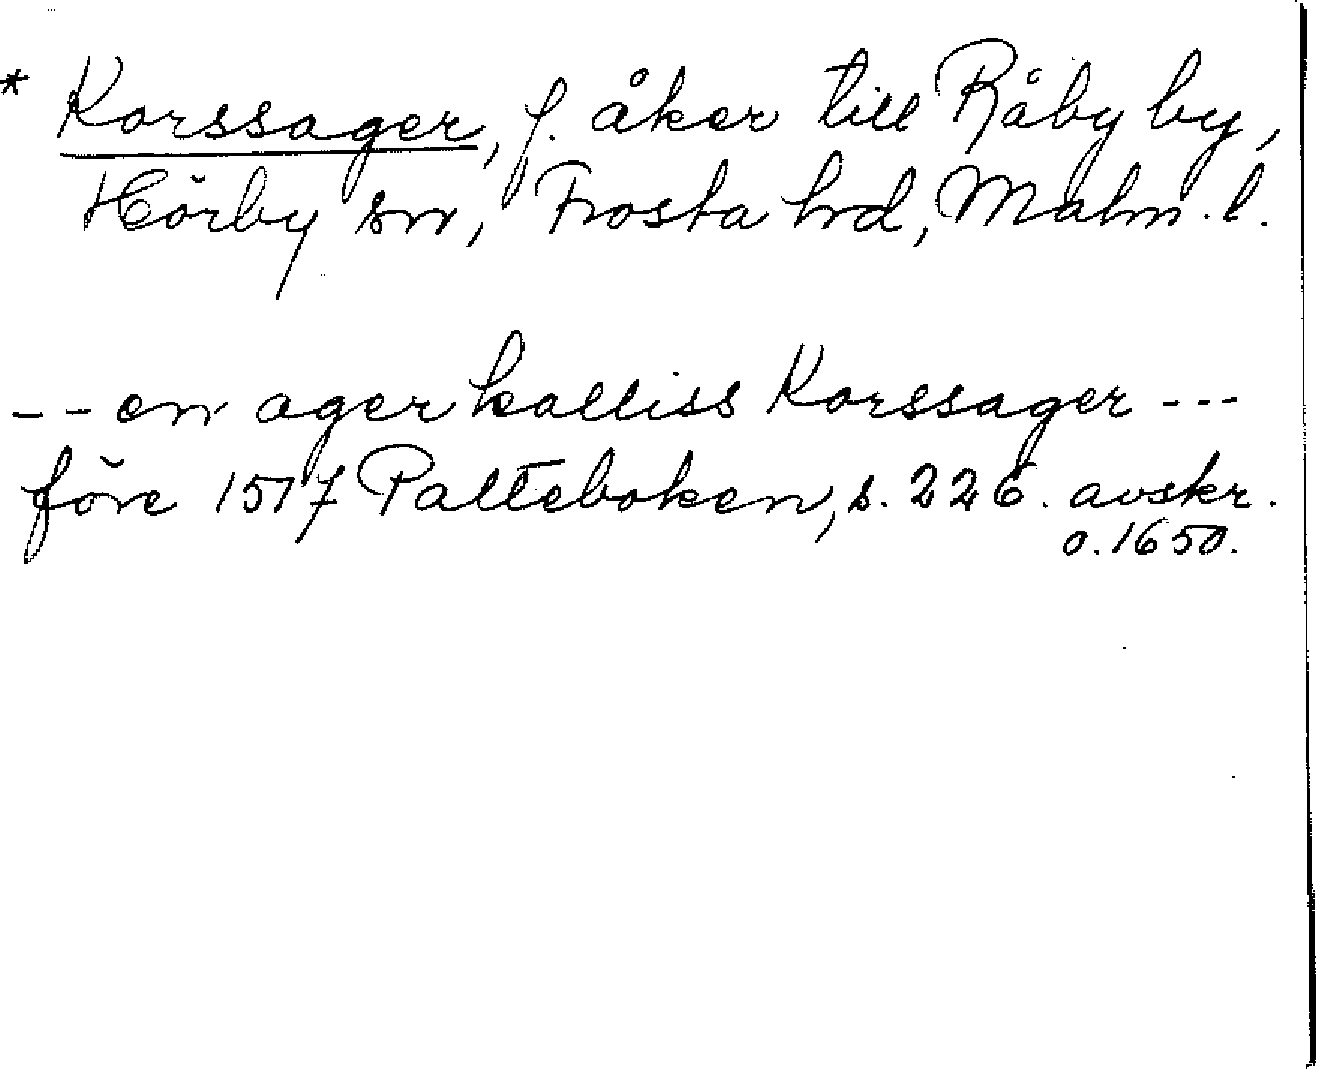 * Korssager, f. åker till Råby by,
Hörby sn, Frosta hd, Malm. l.
-- en ager kalliss Korssager ---
före 1517 Palteboken, s. 226. avskr.
o. 1650.